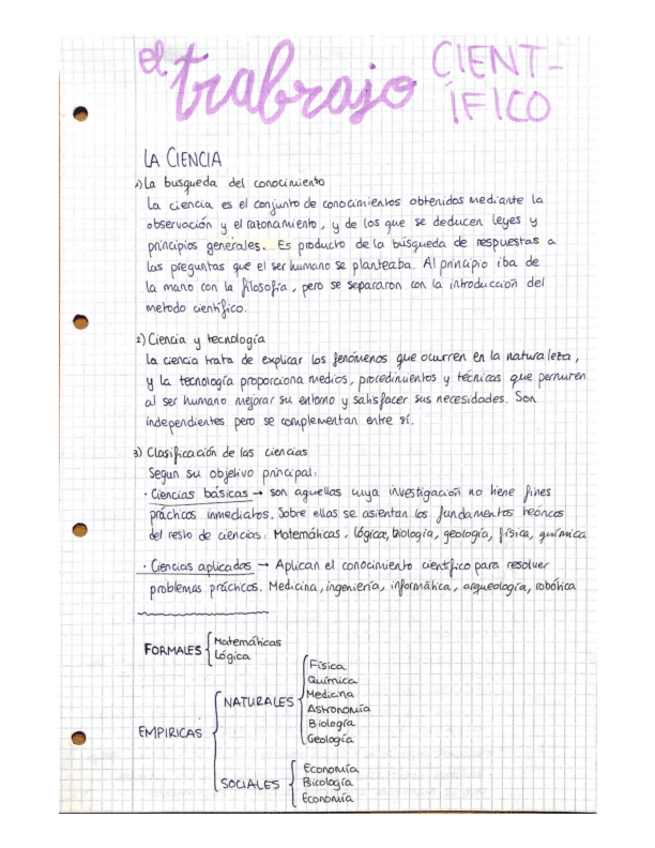 el trabrajo CIENT-
ÍFICO
LA CIENCIA
1) La busqueda del conocimiento
La ciencia es el conjunto de conocimientos obtenidos mediante la
observación y el razonamiento, y de los que se deducen leyes y
principios generales. Es producto de la búsqueda de respuestas a
las preguntas que el ser humano se planteaba. Al principio iba de
la mano con la filosofía, pero se separaron con la introducción del
metodo científico.
2) Ciencia y tecnología
La ciencia trata de explicar los fenómenos que ocurren en la naturaleza,
y la tecnología proporciona medios, procedimientos y técnicas que permiten
al ser humano mejorar su entorno y satisfacer sus necesidades. Son
independientes pero se complementan entre sí.
3) Clasificación de las ciencias
Segun su objetivo principal:
· Ciencias básicas → son aquellas cuya investigación no tiene fines
prácticos inmediatos. Sobre ellas se asientan los fundamentos teóricos
del resto de ciencias. Matemáticas, lógica, biología, geología, física, química
· Ciencias aplicadas → Aplican el conocimiento científico para resolver
problemas prácticos. Medicina, ingeniería, informática, arqueología, robótica
FORMALES { Matemáticas
Lógica
EMPIRICAS { NATURALES { Física
Química
Medicina
Astronomía
Biología
Geología
SOCIALES { Economía
Bicología
Economía